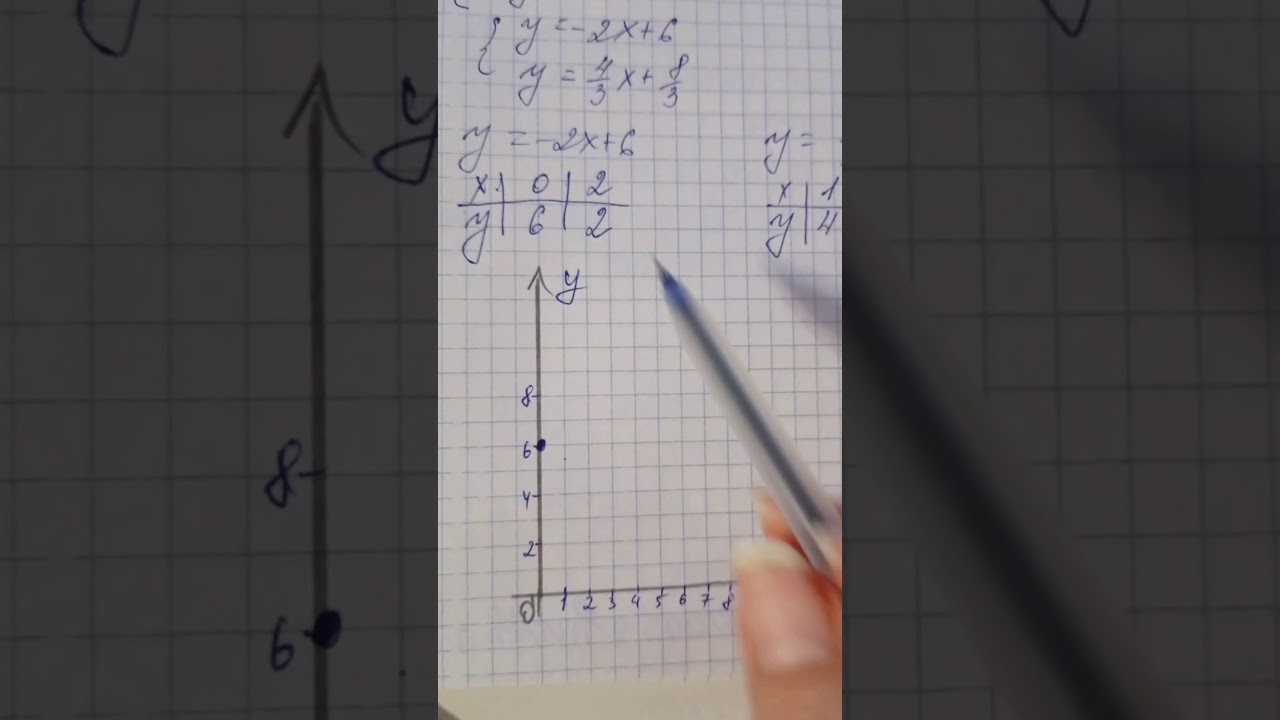 y = -2x+6
y = 4/3 x + 8/3
y = -2x+6 y =
x 0 2 x 1
y 6 2 y 4
y
8
6
4
2
0 1 2 3 4 5 6 7 8